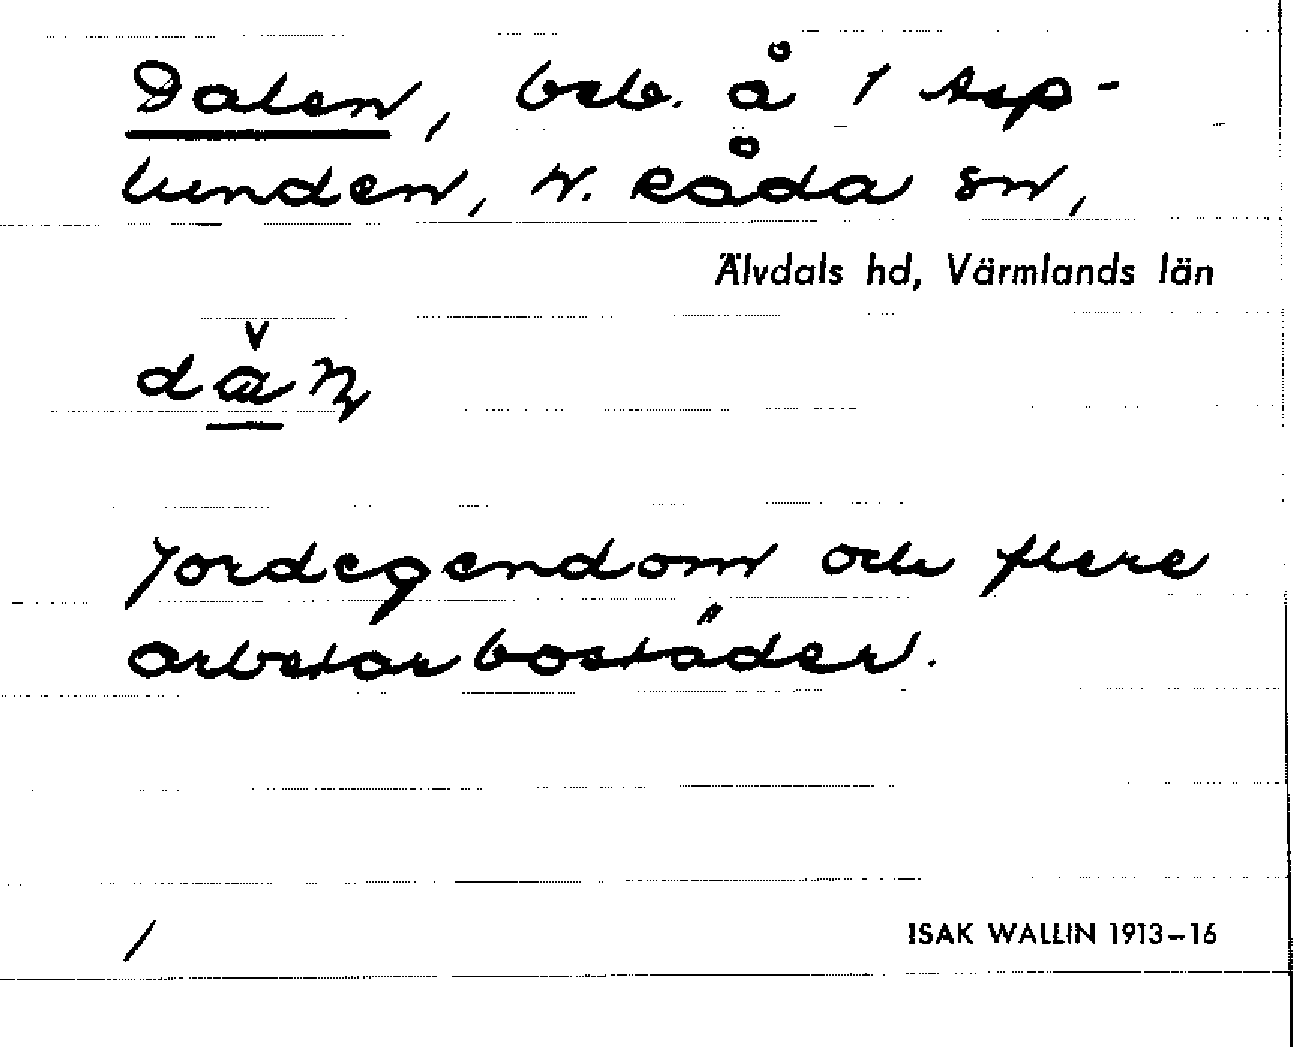 Dalen, beb. å 1 Asp-
lunden, N. Råda sn,
Älvdals hd, Värmlands län
Jordegendom och flere
arbetarbostäder.
/
ISAK WALLIN 1913–16